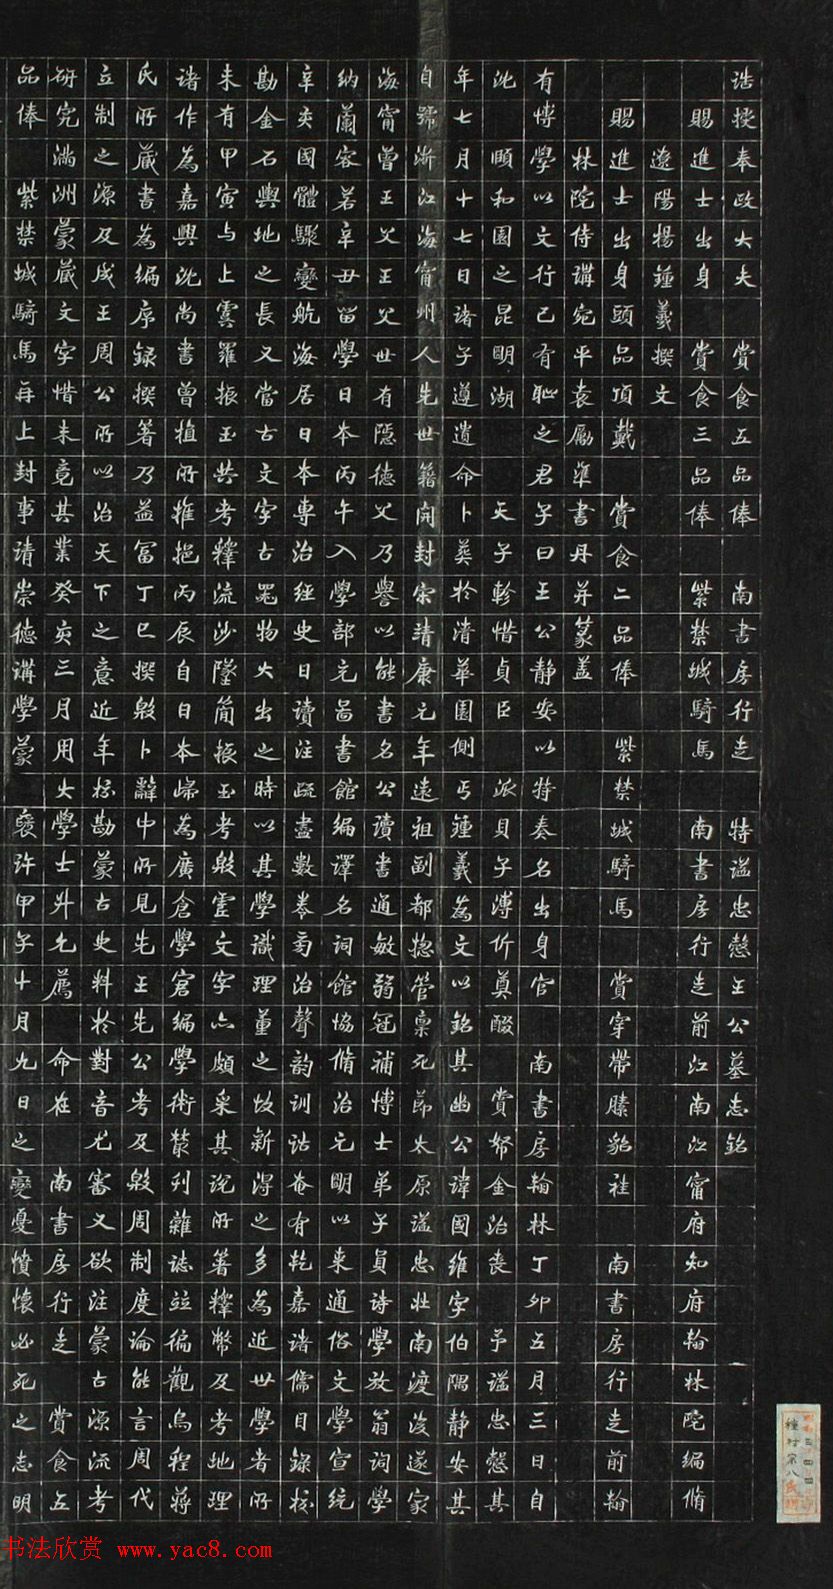 誥授奉政大夫 賞食五品俸 南書房行走 特謚忠慤王公墓志銘
賜進士出身 賞食三品俸 紫禁城騎馬 南書房行走前江南江甯府知府翰林院編脩
遼陽楊鍾羲撰文
賜進士出身頭品頂戴 賞食二品俸 紫禁城騎馬 賞穿帶膆貂褂 南書房行走前翰
林院侍講宛平袁勵準書丹并篆蓋
有博學以文行己有恥之君子曰王公静安以特奏名出身官 南書房翰林丁卯五月三日自
沈 頤和園之昆明湖 天子軫惜貞臣 派貝子溥伒奠醊 賞帑金治喪 予謚忠慤其
年七月十七日諸子遵遺命卜葬於清華園側丐鍾羲為文以銘其幽公諱國維字伯隅静安其
自號浙江海甯州人先世籍開封宋靖康元年遠祖副都揔管禀死節太原謚忠壯南渡後遂家
海甯曾王父王父世有隱德父乃譽以能書名公讀書通敏弱冠補博士弟子員詩學放翁詞學
納蘭容若辛丑留學日本丙午入學部充圖書館編譯名詞館協脩治元明以来通俗文學宣統
辛亥國體驟變航海居日本專治經史日讀注疏盡數卷旁治聲韵訓詁奄有乾嘉諸儒目錄挍
勘金石輿地之長又當古文字古器物大出之時以其學識理董之故新得之多為近世學者所
未有甲寅与上虞羅振玉共考釋流沙墜簡振玉考殷虛文字亦頗采其說所著釋幣及考地理
諸作為嘉興沈尚書曾植所推挹丙辰自日本歸為廣倉學宭編學術叢刊雜誌竝徧觀烏程蔣
氏所藏書為編序録撰著乃益富丁巳撰殷卜辭中所見先王先公考及殷周制度論能言周代
立制之源及成王周公所以治天下之意近年挍勘蒙古史料於對音尤審又欲注蒙古源流考
研究滿洲蒙藏文字惜未竟其業癸亥三月用大學士升允薦 命在 南書房行走 賞食五
品俸 紫禁城騎馬再上封事请崇德講學蒙 褒许甲子十月九日之變憂憤懷必死之志明
書法欣赏 www.yac8.com